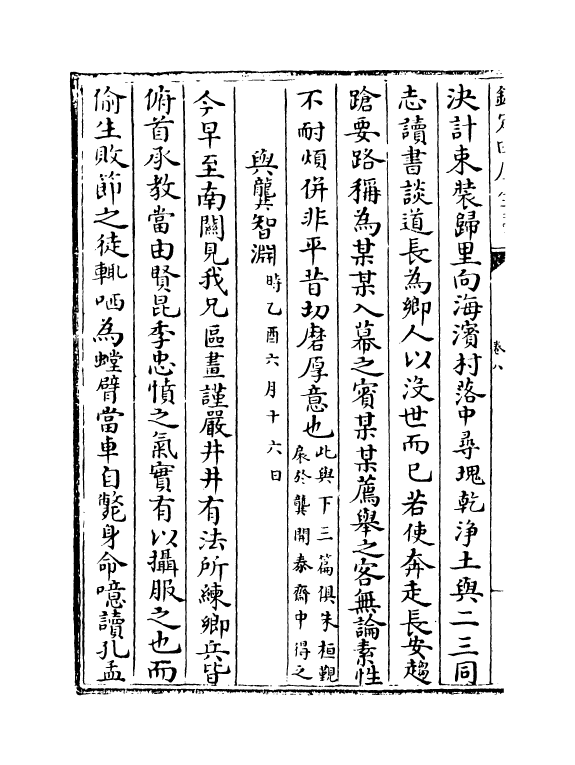 欽定四庫全書
卷八
決計束裝歸里向海濱村落中尋塊乾淨土與二三同
志讀書談道長為鄉人以沒世而已若使奔走長安趨
蹌要路稱為某某入幕之賓某某薦舉之客無論素性
不耐煩併非平昔切磨厚意也此與下三篇俱朱桓觀
扆於龔開泰齋中得之
與龔智淵時乙酉六月十六日
今早至南關見我兄區畫謹嚴井井有法所練鄉兵皆
俯首承教當由賢昆季忠憤之氣實有以攝服之也而
偷生敗節之徒輒哂為螳臂當車自斃身命噫讀孔孟